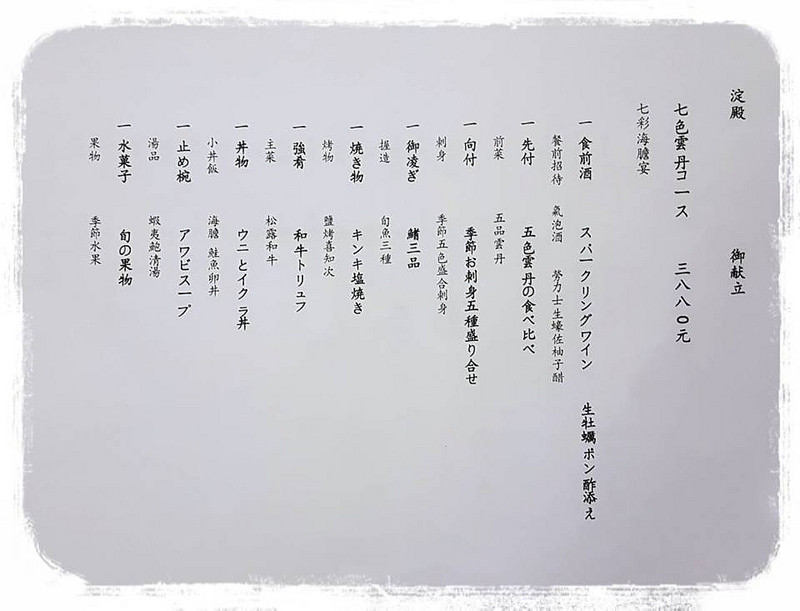 淀殿 御献立
七色雲丹コース 三八八〇元
七彩海膽宴
一 食前酒 スパークリングワイン 生牡蠣ポン酢添え
餐前招待 氣泡酒 勞力士生蠔佐柚子醋
一 先付 五色雲丹の食べ比べ
前菜 五品雲丹
一 向付 季節お刺身五種盛り合せ
刺身 季節五色盛合刺身
一 御凌ぎ 鰭三品
握造 旬魚三種
一 焼き物 キンキ塩焼き
烤物 鹽烤喜知次
一 強肴 和牛トリュフ
主菜 松露和牛
一 丼物 ウニとイクラ丼
小丼飯 海膽 鮭魚卵丼
一 止め椀 アワビスープ
湯品 蝦夷鮑清湯
一 水菓子 旬の果物
果物 季節水果